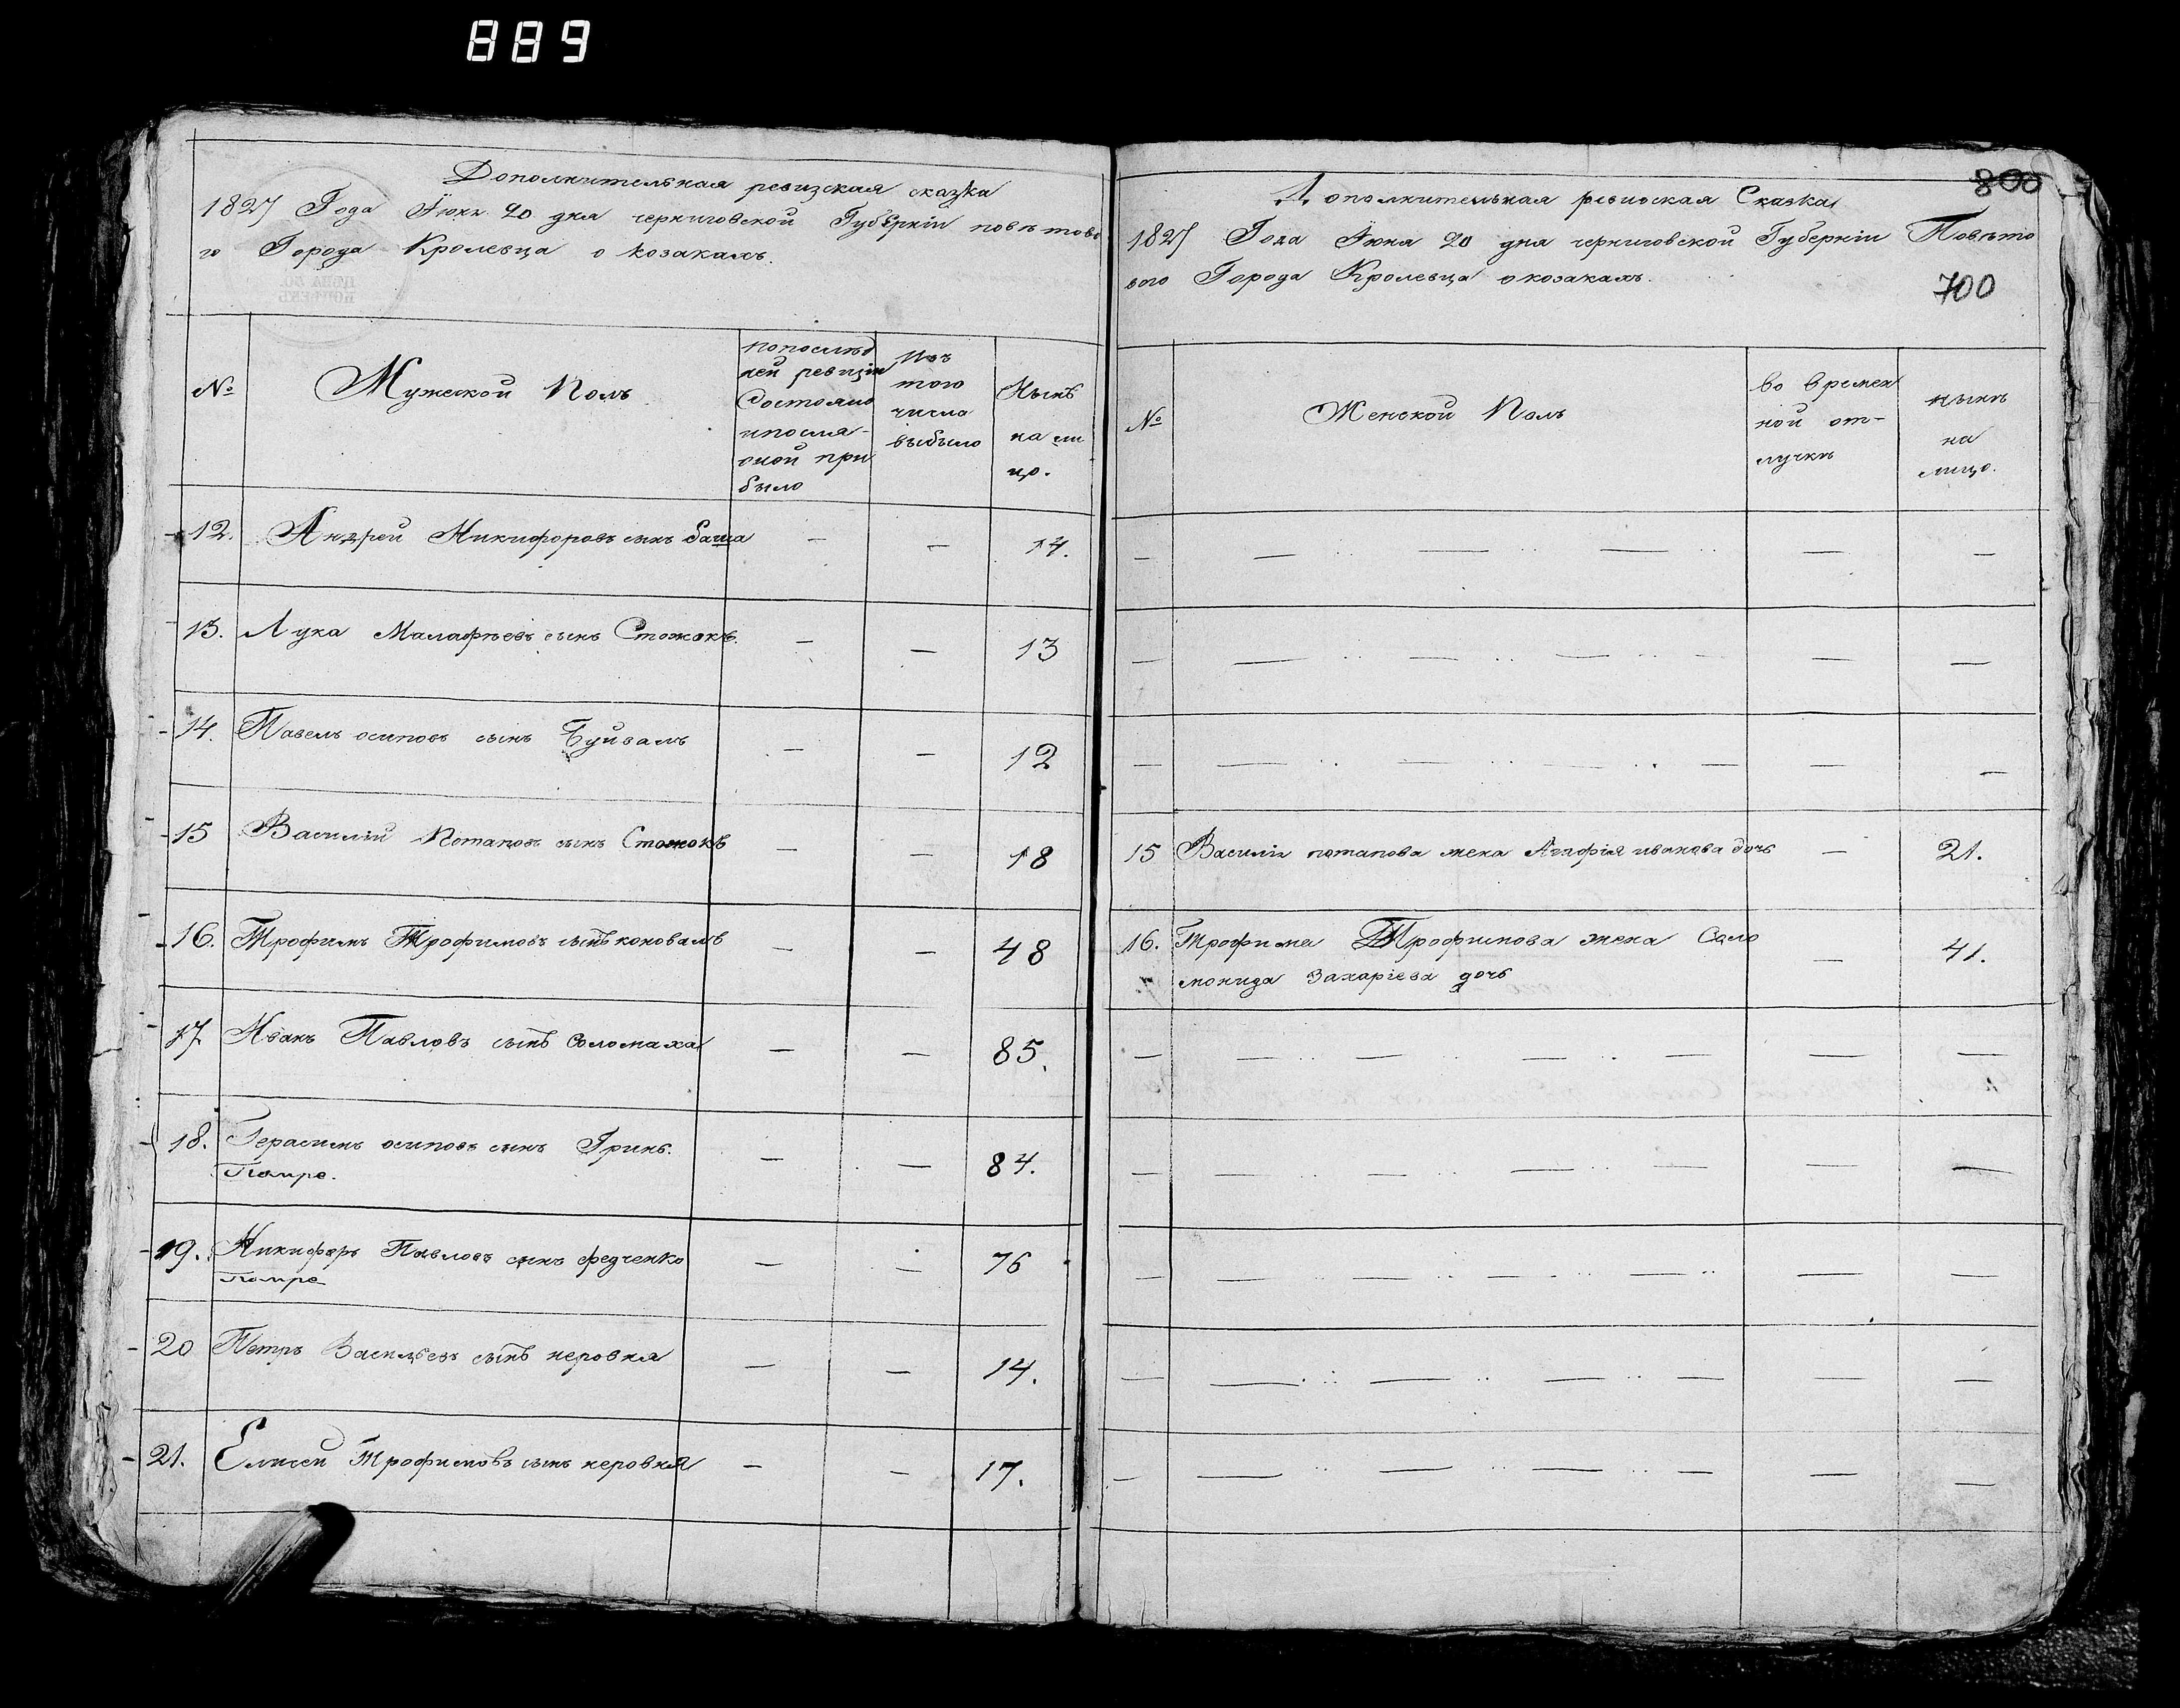 889
Дополнительная ревизская сказка
1827 Года Июня 20 дня черниговской Губернiи повѣтово
го Города Кролевца о козакахъ.
№
Мужеской Полъ
попослѣд
ней ревизiи
Состояло
ипосля
оной при
было
Изъ
того
числа
выбыло
Нынѣ
на ли
цо.
12. Андрей Никифоровъ сынъ баша — — 14.
13. Лука Малафѣевъ сынъ Стожокъ. — — 13
14. Павелъ осиповъ сынъ Буйвалъ — — 12
15 Василiй Потаповъ сынъ Стожокъ — — 18
16. Трофимъ Трофимовъ сынъ коновалъ — — 48
17 Иванъ Павловъ сынъ Соломаха — — 85.
18. Герасимъ осиповъ сынъ Гринь. — — 84.
Помре.
19. Никифоръ Павловъ сынъ федченко — — 76
Помре
20 Петръ Васильевъ сынъ неровня — — 14.
21. Елисей Трофимовъ сынъ неровня — — 17.
800
Дополнительная ревиская Сказка
1827 Года Июня 20 дня черниговской Губернiи Повѣто
вого Города Кролевца окозакахъ.
700
№
Женской Полъ
во времен
ной от-
лучкѣ
нынѣ
на
лицо.
— — — — — —
— — — — — — —
— — — — — — —
15 Василiя потапова жена Агафiя иванова дочь — 21.
16. Трофима Трофимова жена Соло — 41.
монида Захарiева дочь
— — — — — — —
— — — — — — —
— — — — — — —
— — — — — — —
— — — — — — —